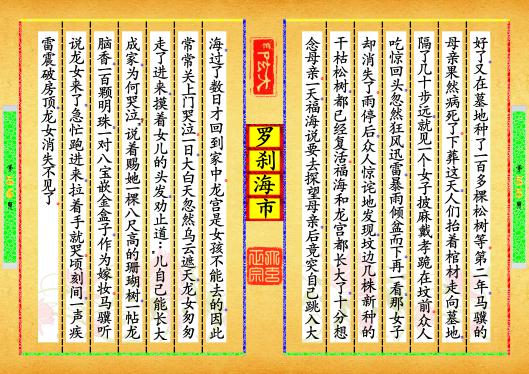 好了又在墓地种了一百多棵松树等第二年马骥的
母亲果然病死了下葬这天人们抬着棺材走向墓地
隔了几十步远就见一个女子披麻戴孝跪在坟前众人
吃惊回头忽然狂风迅雷暴雨倾盆而下再一看那女子
却消失了雨停后众人惊诧地发现坟边几株新种的
干枯松树都已经复活福海和龙宫都长大了十分想
念母亲一天福海说要去探望母亲后竟突自己跳入大
罗刹海市
海过了数日才回到家中龙宫是女孩不能去的因此
常常关上门哭泣一日大白天忽然乌云遮天龙女匆匆
走了进来摸着女儿的头发劝止道:儿自己能长大
成家为何哭泣,说着赐她一棵八尺高的珊瑚树一帖龙
脑香一百颗明珠一对八宝嵌金盒子作为嫁妆马骥听
说龙女来了急忙跑进来拉着手就哭顷刻间一声疾
雷震破房顶龙女消失不见了